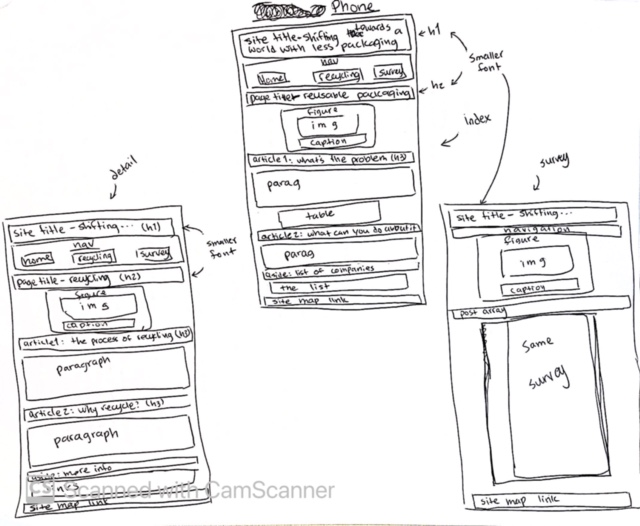 Phone
site title-shifting towards a
world with less packaging
nav
Home recycling survey
page title reusable packaging
figure
img
caption
article1: what's the problem (h3)
parag
table
article2: what can you do about it
parag
aside: list of companies
the list
site map link
h1
smaller
font
h2
index
detail
site title - shifting... (h1)
nav
home recycling survey
page title - recycling (h2)
figure
img
caption
article1: the process of recycling (h3)
paragraph
article2: why recycle? (h3)
paragraph
aside: more info
site map link
smaller
font
survey
site title - shifting...
navigation
figure
img
caption
post array
same
survey
site map link
CS Scanned with CamScanner